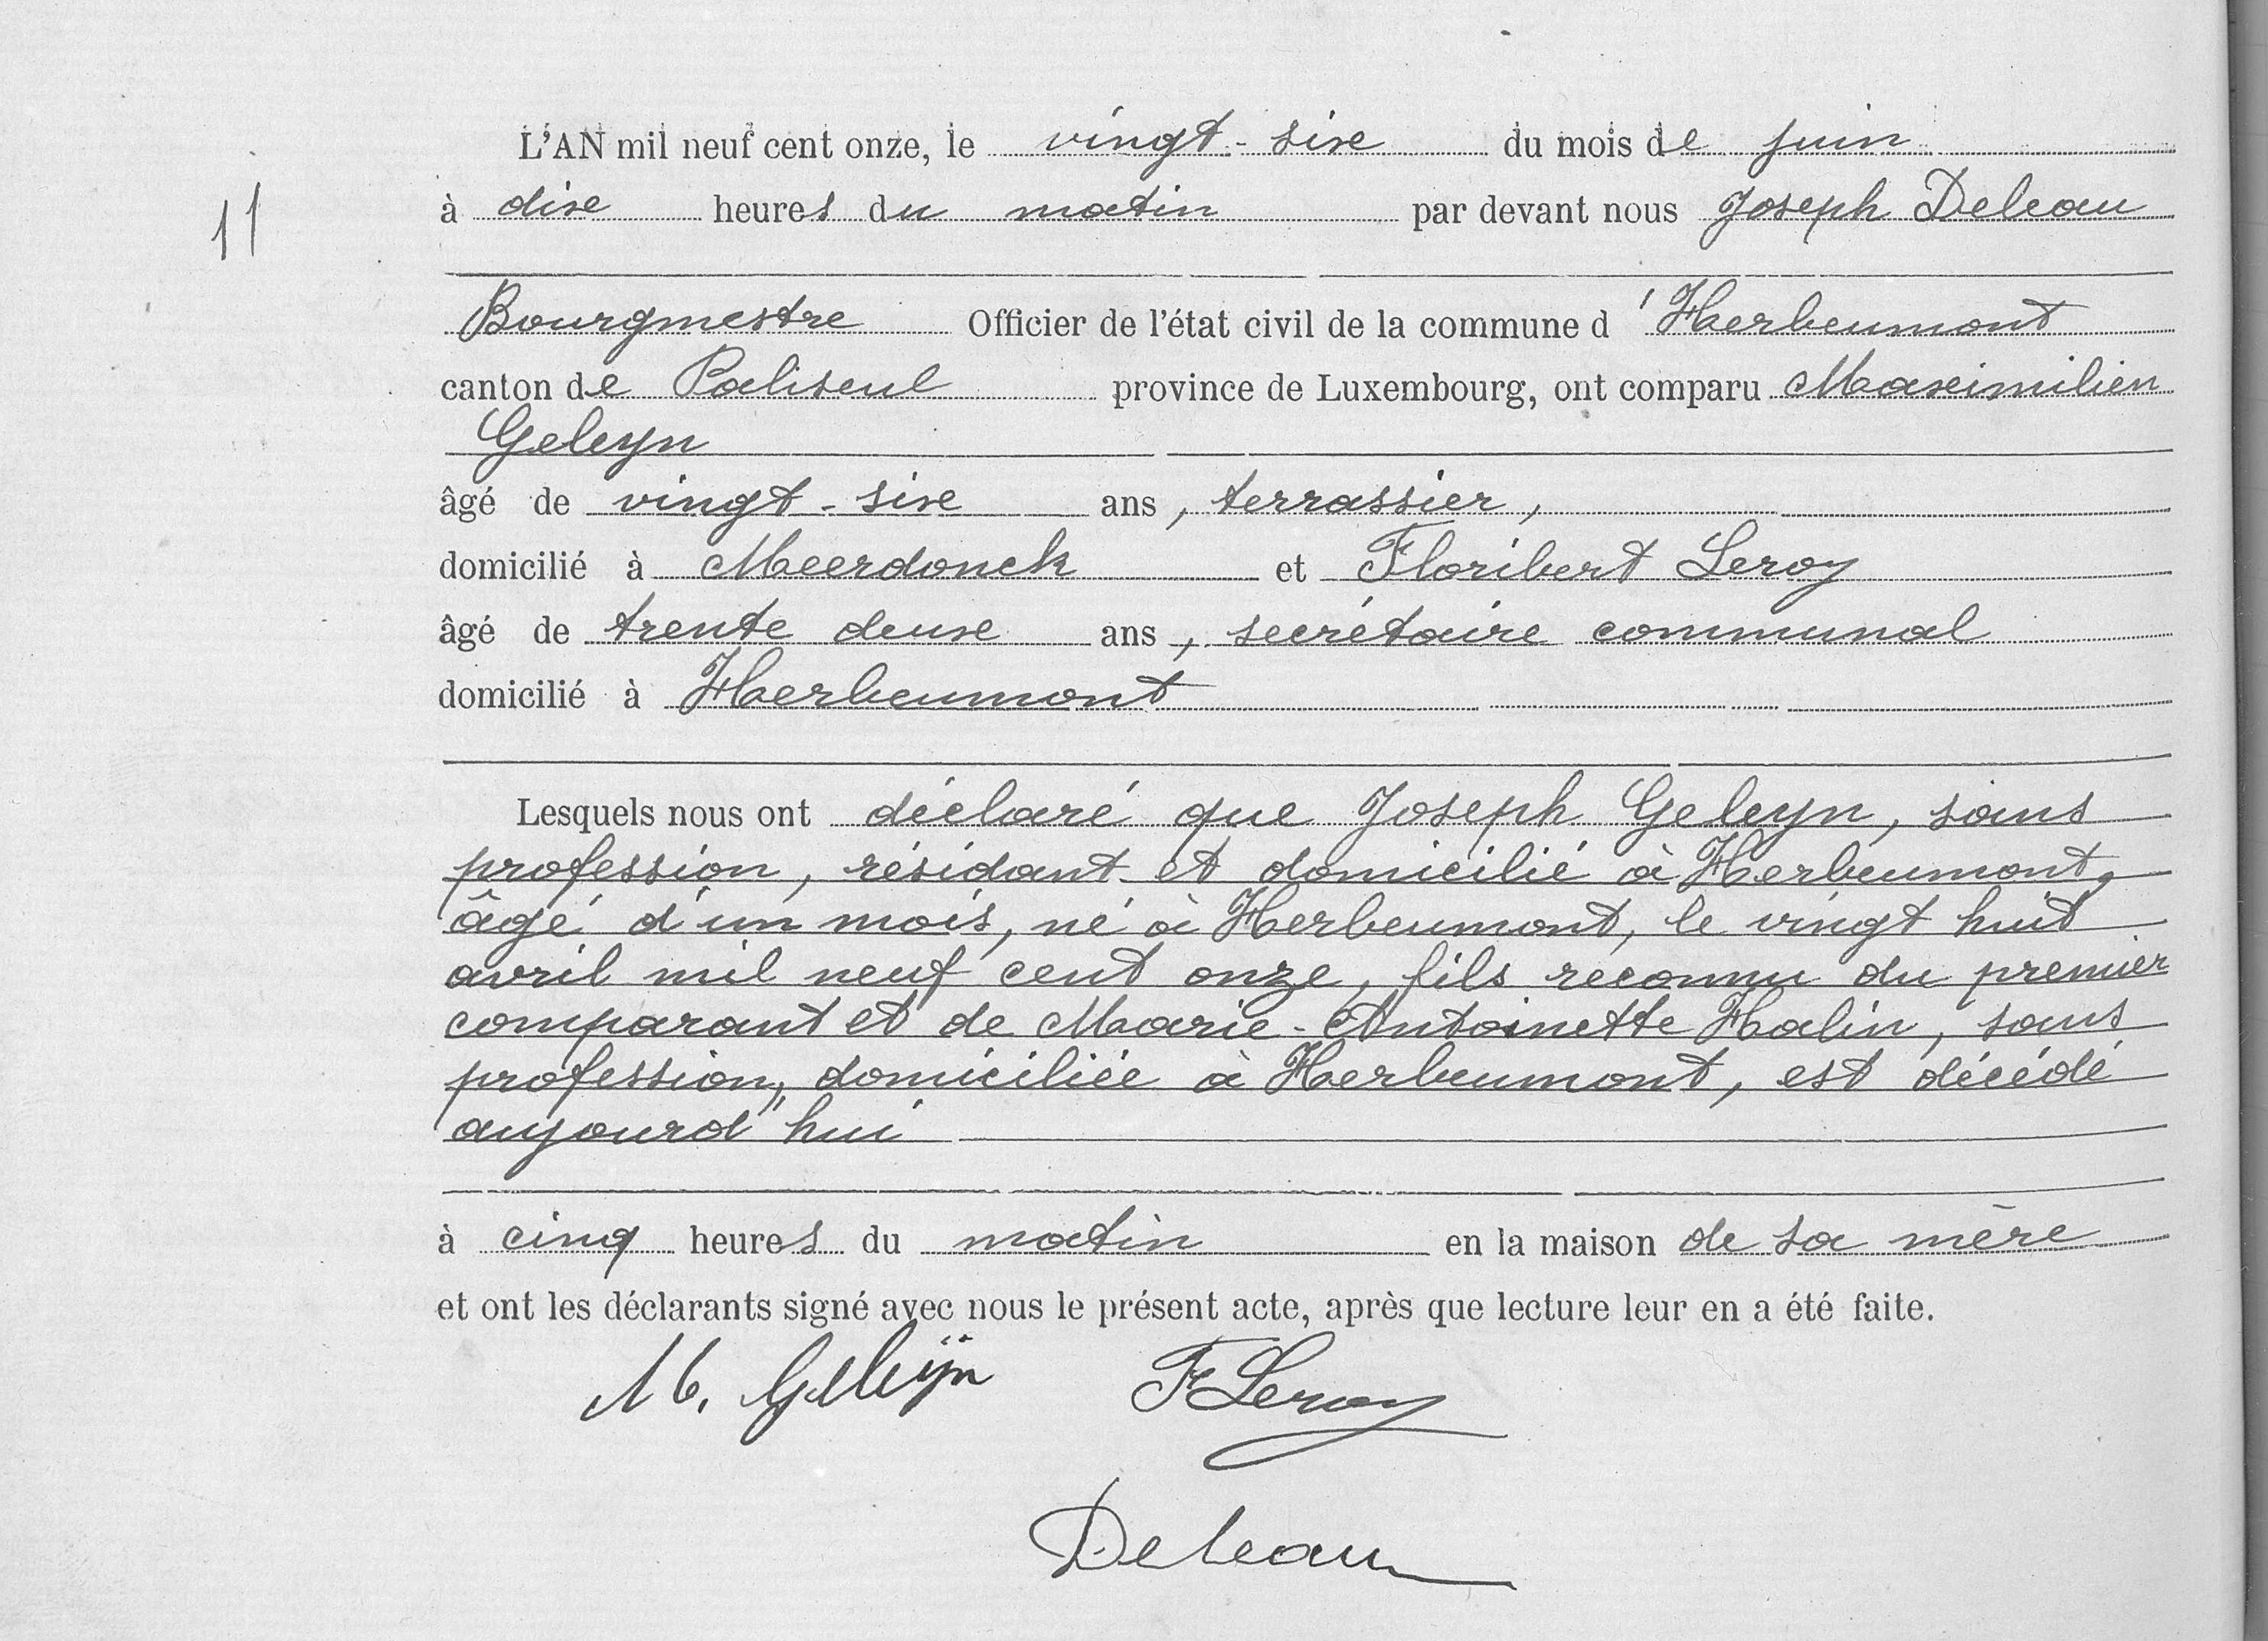 L'AN mil neuf cent onze, le vingt-six du mois de juin
11
à dix heures du matin par devant nous Joseph Deleau
Bourgmestre Officier de l'état civil de la commune d'Herbeumont
canton de Paliseul province de Luxembourg, ont comparu Maximilien
Geleyn
âgé de vingt-six ans, terrassier,
domicilié à Meerdonck et Floribert Leroy
âgé de trente deux ans, secrétaire communal
domicilié à Herbeumont
Lesquels nous ont déclaré que Joseph Geleyn, sans
profession, résidant et domicilié à Herbeumont,
âgé d'un mois, né à Herbeumont, le vingt huit
avril mil neuf cent onze, fils reconnu du premier
comparant et de Marie-Antoinette Halin, sans
profession, domiciliée à Herbeumont, est décédé
aujourd'hui
à cinq heures du matin en la maison de sa mère
et ont les déclarants signé avec nous le présent acte, après que lecture leur en a été faite.
M. Geleijn F Leroy
Deleau